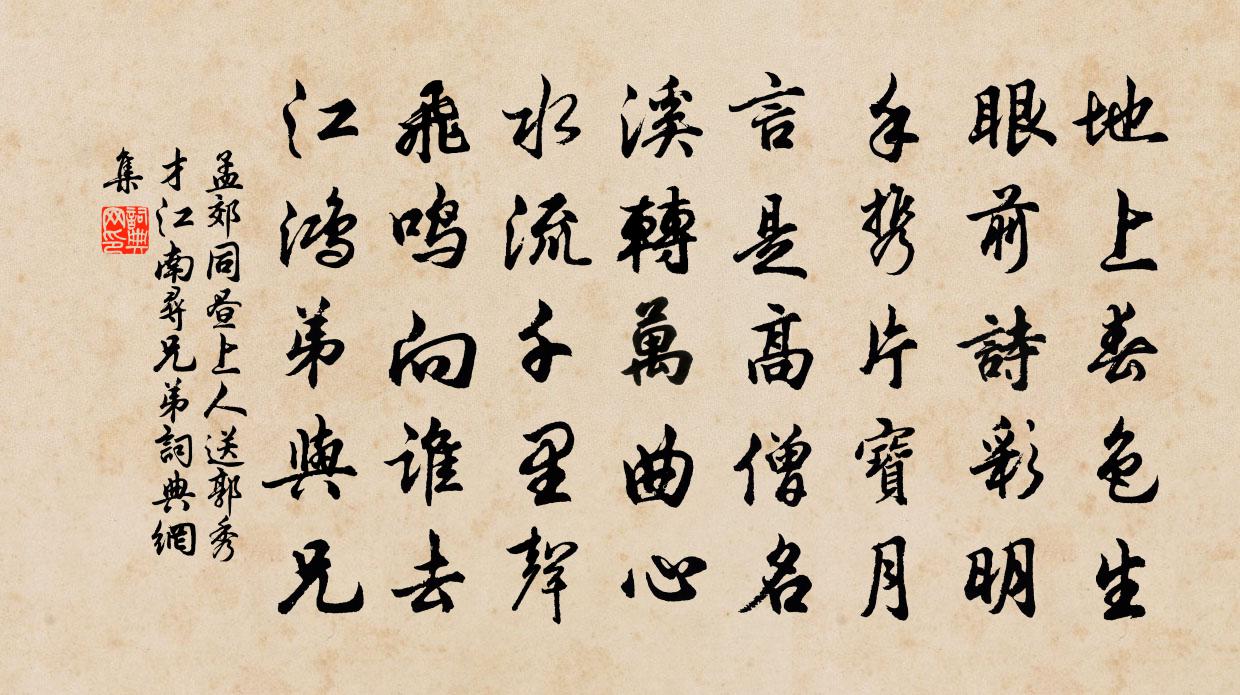 地上春色生
眼前詩彩明
手攜片寶月
言是高僧名
溪轉萬曲心
水流千里聲
飛鳴向誰去
江鴻弟與兄
孟郊同晝上人送郭秀
才江南尋兄弟詞典網
集
詞典网印